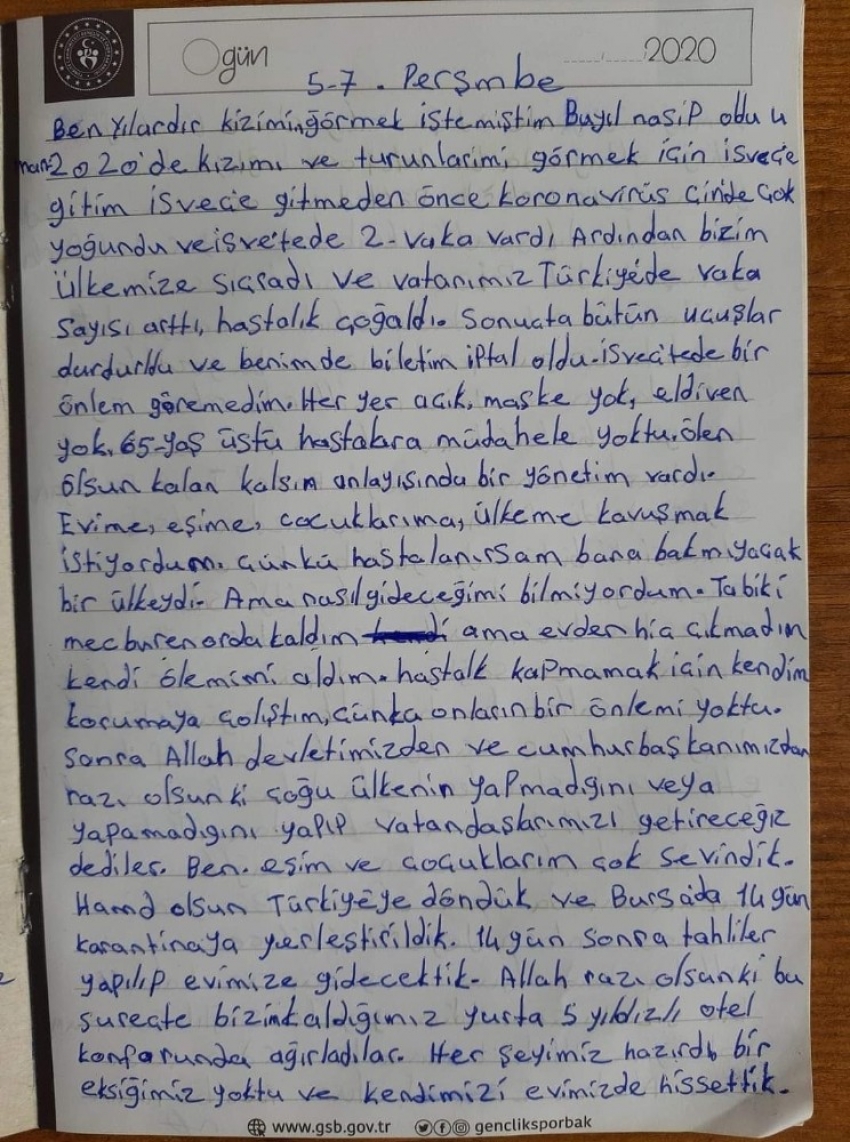 O gün
2020
5-7. Perşmbe
Ben Yılardır kizimi görmek istemiştim Buyıl nasip oldu
2020'de kızımı ve turunlarimi görmek için isveçe
gitim isveçe gitmeden önce koronavirüs çinde çok
yoğundu ve isveçtede 2-vaka vardı Ardından bizim
ülkemize sıçradı ve vatanımız Türkiyéde vaka
Sayısı arttı, hastalık çoğaldı. Sonuçta bütün uçuşlar
durduruldu ve benimde biletim iptal oldu. isveçtede bir
önlem göremedim. Her yer açık, maske yok, eldiven
yok. 65-yaş üstü hastalara müdahele yoktu. ölen
ölsun kalan kalsın anlayışında bir yönetim vardı.
Evime, eşime, cocuklarıma, ülkeme kavuşmak
istiyordum. çünkü hastalanırsam bana bakmıyaçak
bir ülkeydi- Ama nasıl gideceğimi bilmiyordum. Tabiki
mecburen orda kaldım ama evden hiç çıkmadım
kendi ölemimi aldım. hastalk kapmamak için kendim
korumaya çalıştım, çünkü onların bir önlemi yoktu.
Sonra Allah devletimizden ve cumhurbaşkanımızdan
razı olsun ki çoğu ülkenin yapmadıgını veya
yapamadıgını yapıp vatandaşlarımızı getireceğiz
dediler. Ben. eşim ve çoçuklarım çok sevindik.
Hamd olsun Türkiyéye döndük ve Bursáda 14 gün
karantinaya yerleştirildik. 14 gün sonra tahliler
yapılıp evimize gidecektik. Allah razı olsunki bu
sureçte bizim kaldığımız yurta 5 yıldızlı otel
konforunda ağırladılar. Her şeyimiz hazırdı, bir
eksiğimiz yoktu ve kendimizi evimizde hissettik.
www.gsb.gov.tr gencliksporbak